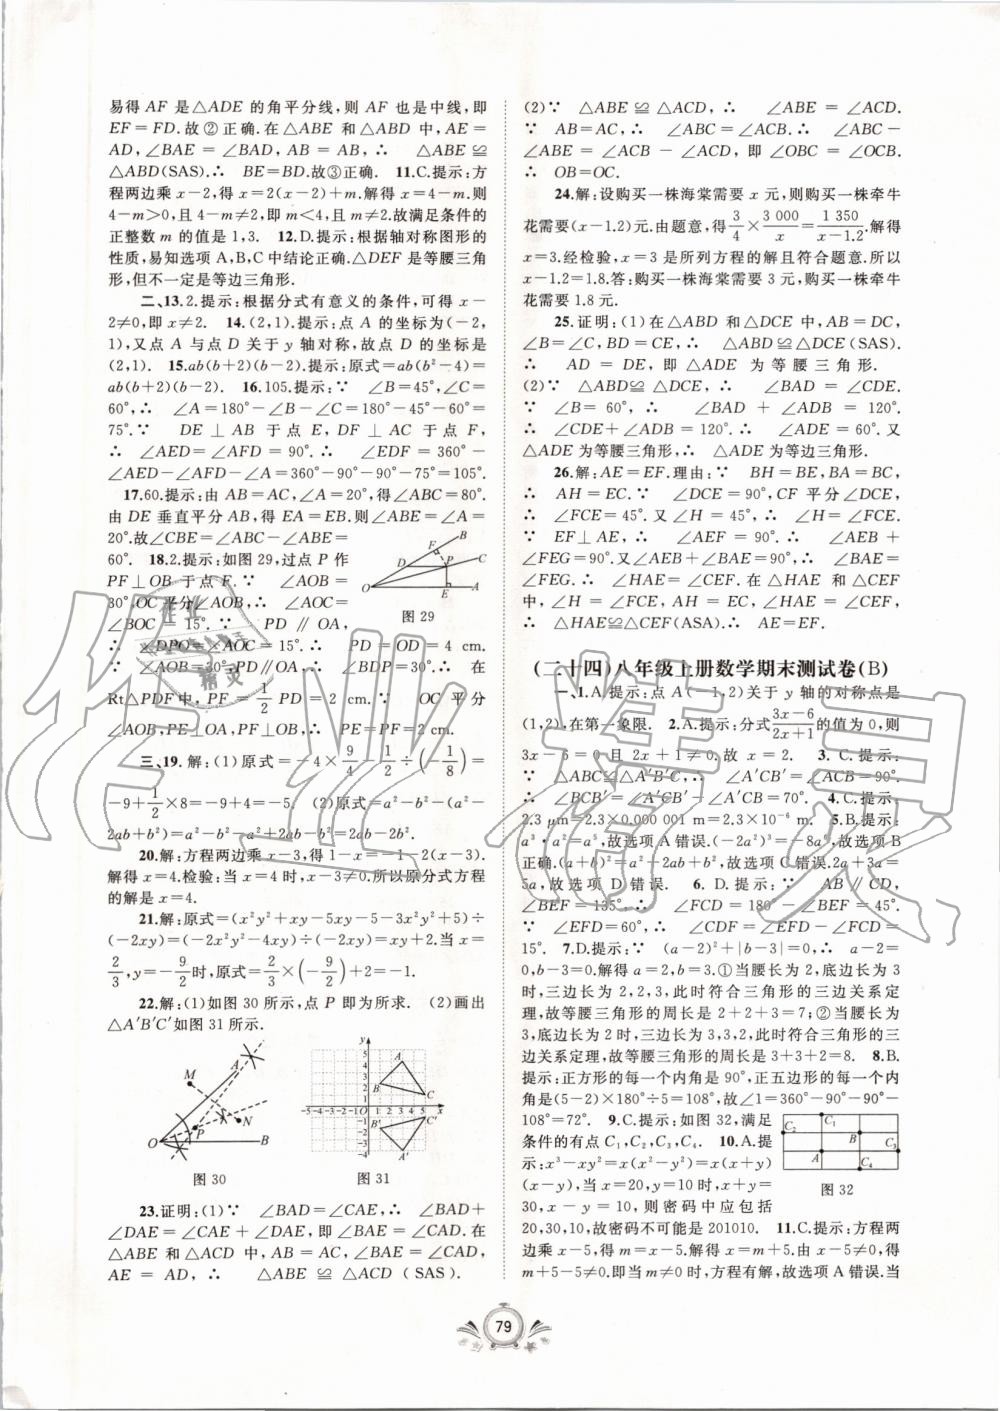 易得 AF 是△ADE 的角平分线,则 AF 也是中线,即
EF=FD.故②正确.在△ABE 和△ABD 中,AE=
AD,∠BAE=∠BAD,AB=AB,∴ △ABE≌
△ABD(SAS).∴ BE=BD.故③正确. 11.C.提示:方
程两边乘 x-2,得 x=2(x-2)+m.解得 x=4-m.则
4-m>0,且 4-m≠2,即 m<4,且 m≠2.故满足条件的
正整数 m 的值是 1,3. 12.D.提示:根据轴对称图形的
性质,易知选项 A,B,C 中结论正确.△DEF 是等腰三角
形,但不一定是等边三角形.
二、13.2.提示:根据分式有意义的条件,可得 x-
2≠0,即 x≠2. 14.(2,1).提示:点 A 的坐标为(-2,
1),又点 A 与点 D 关于 y 轴对称,故点 D 的坐标是
(2,1). 15.ab(b+2)(b-2).提示:原式=ab(b²-4)=
ab(b+2)(b-2). 16.105.提示:∵ ∠B=45°,∠C=
60°,∴ ∠A=180°-∠B-∠C=180°-45°-60°=
75°.∵ DE⊥AB 于点 E,DF⊥AC 于点 F,
∴ ∠AED=∠AFD=90°.∴ ∠EDF=360°-
∠AED-∠AFD-∠A=360°-90°-90°-75°=105°.
17.60.提示:由 AB=AC,∠A=20°,得∠ABC=80°.
由 DE 垂直平分 AB,得 EA=EB.则∠ABE=∠A=
20°.故∠CBE=∠ABC-∠ABE=
60°. 18.2.提示:如图 29,过点 P 作
PF⊥OB 于点 F.∵ ∠AOB=
30°,OC 平分∠AOB,∴ ∠AOC=
∠BOC=15°.∵ PD∥OA,
∴ ∠DPO=∠AOC=15°.∴ PD=OD=4 cm.
∵ ∠AOB=30°,PD∥OA,∴ ∠BDP=30°.∴ 在
Rt△PDF中,PF=1/2 PD=2 cm.∵ OC 平分
∠AOB,PE⊥OA,PF⊥OB,∴ PE=PF=2 cm.
三、19.解:(1)原式=-4×9/4+1/2÷(-1/8)=
-9+1/2×8=-9+4=-5. (2)原式=a²-b²-(a²-
2ab+b²)=a²-b²-a²+2ab-b²=2ab-2b².
20.解:方程两边乘 x-3,得 1-x=-1-2(x-3).
解得 x=4.检验:当 x=4 时,x-3≠0.所以原分式方程
的解是 x=4.
21.解:原式=(x²y²+xy-5xy-5-3x²y²+5)÷
(-2xy)=(-2x²y²-4xy)÷(-2xy)=xy+2.当 x=
2/3,y=-9/2时,原式=2/3×(-9/2)+2=-1.
22.解:(1)如图 30 所示,点 P 即为所求. (2)画出
△A′B′C′如图 31 所示.
图 29
图 30
图 31
23.证明:(1)∵ ∠BAD=∠CAE,∴ ∠BAD+
∠DAE=∠CAE+∠DAE,即∠BAE=∠CAD.在
△ABE 和△ACD 中,AB=AC,∠BAE=∠CAD,
AE=AD,∴ △ABE≌△ACD(SAS).
(2)∵ △ABE≌△ACD,∴ ∠ABE=∠ACD.
∵ AB=AC,∴ ∠ABC=∠ACB.∴ ∠ABC-
∠ABE=∠ACB-∠ACD,即∠OBC=∠OCB.
∴ OB=OC.
24.解:设购买一株海棠需要 x 元,则购买一株牵牛
花需要(x-1.2)元.由题意,得3/4×3 000/x=1 350/(x-1.2).解得
x=3.经检验,x=3 是所列方程的解且符合题意.所以
x-1.2=1.8.答:购买一株海棠需要 3 元,购买一株牵牛
花需要 1.8 元.
25.证明:(1)在△ABD 和△DCE 中,AB=DC,
∠B=∠C,BD=CE,∴ △ABD≌△DCE(SAS).
∴ AD=DE,即△ADE 为等腰三角形.
(2)∵ △ABD≌△DCE,∴ ∠BAD=∠CDE.
∵ ∠B=60°,∴ ∠BAD+∠ADB=120°.
∴ ∠CDE+∠ADB=120°.∴ ∠ADE=60°.又
△ADE 为等腰三角形,∴ △ADE 为等边三角形.
26.解:AE=EF.理由:∵ BH=BE,BA=BC,
∴ AH=EC.∵ ∠DCE=90°,CF 平分∠DCE,
∴ ∠FCE=45°.又∠H=45°,∴ ∠H=∠FCE.
∵ EF⊥AE,∴ ∠AEF=90°.∴ ∠AEB+
∠FEG=90°.又∠AEB+∠BAE=90°,∴ ∠BAE=
∠FEG.∴ ∠HAE=∠CEF.在△HAE 和△CEF
中,∠H=∠FCE,HA=CE,∠HAE=∠CEF,
∴ △HAE≌△CEF(ASA).∴ AE=EF.
(二十四)八年级上册数学期末测试卷(B)
一、1.A.提示:点 A(-1,2)关于 y 轴的对称点是
(1,2),在第一象限. 2.A.提示:分式(3x-6)/(2x+1)的值为 0,则
3x-6=0 且 2x+1≠0.故 x=2. 3.C.提示:
∵ △ABC≌△A′B′C,∴ ∠A′CB′=∠ACB=90°.
∴ ∠BCB′=∠A′CB′-∠A′CB=70°. 4.C.提示:
2.3 μm=2.3×0.000 001 m=2.3×10⁻⁶ m. 5.B.提示:
a³·a²=a⁵,故选项 A 错误.(-2a²)³=-8a⁶,故选项 B
正确.(a+b)²=a²+2ab+b²,故选项 C 错误.2a+3a=
5a,故选项 D 错误. 6.D.提示:∵ AB∥CD,
∠BEF=135°,∴ ∠FCD=180°-∠BEF=45°.
∵ ∠EFD=60°,∴ ∠CDF=∠EFD-∠FCD=
15°. 7.D.提示:∵ (a-2)²+|b-3|=0,∴ a-2=
0,b-3=0.解得 a=2,b=3.①当腰长为 2,底边长为 3
时,三边长为 2,2,3,此时符合三角形的三边关系定
理,故等腰三角形的周长是 2+2+3=7;②当腰长为
3,底边长为 2 时,三边长为 3,3,2,此时符合三角形的三
边关系定理,故等腰三角形的周长是 3+3+2=8. 8.B.
提示:正方形的每一个内角是 90°,正五边形的每一个内
角是(5-2)×180°÷5=108°,故∠1=360°-90°-90°-
108°=72°. 9.C.提示:如图 32,满足
条件的有点 C₁,C₂,C₃,C₄. 10.A.提
示:x³-xy²=x(x²-y²)=x(x+y)
(x-y),当 x=20,y=10 时,x+y=
30,x-y=10,则密码中应包括
20,30,10,故密码不可能是 201010. 11.C.提示:方程两
边乘 x-5,得 m=x-5.解得 x=m+5.由 x-5≠0,得
m+5-5≠0.即当 m≠0 时,方程有解,故选项 A 错误.当
图 32
79
作业精灵